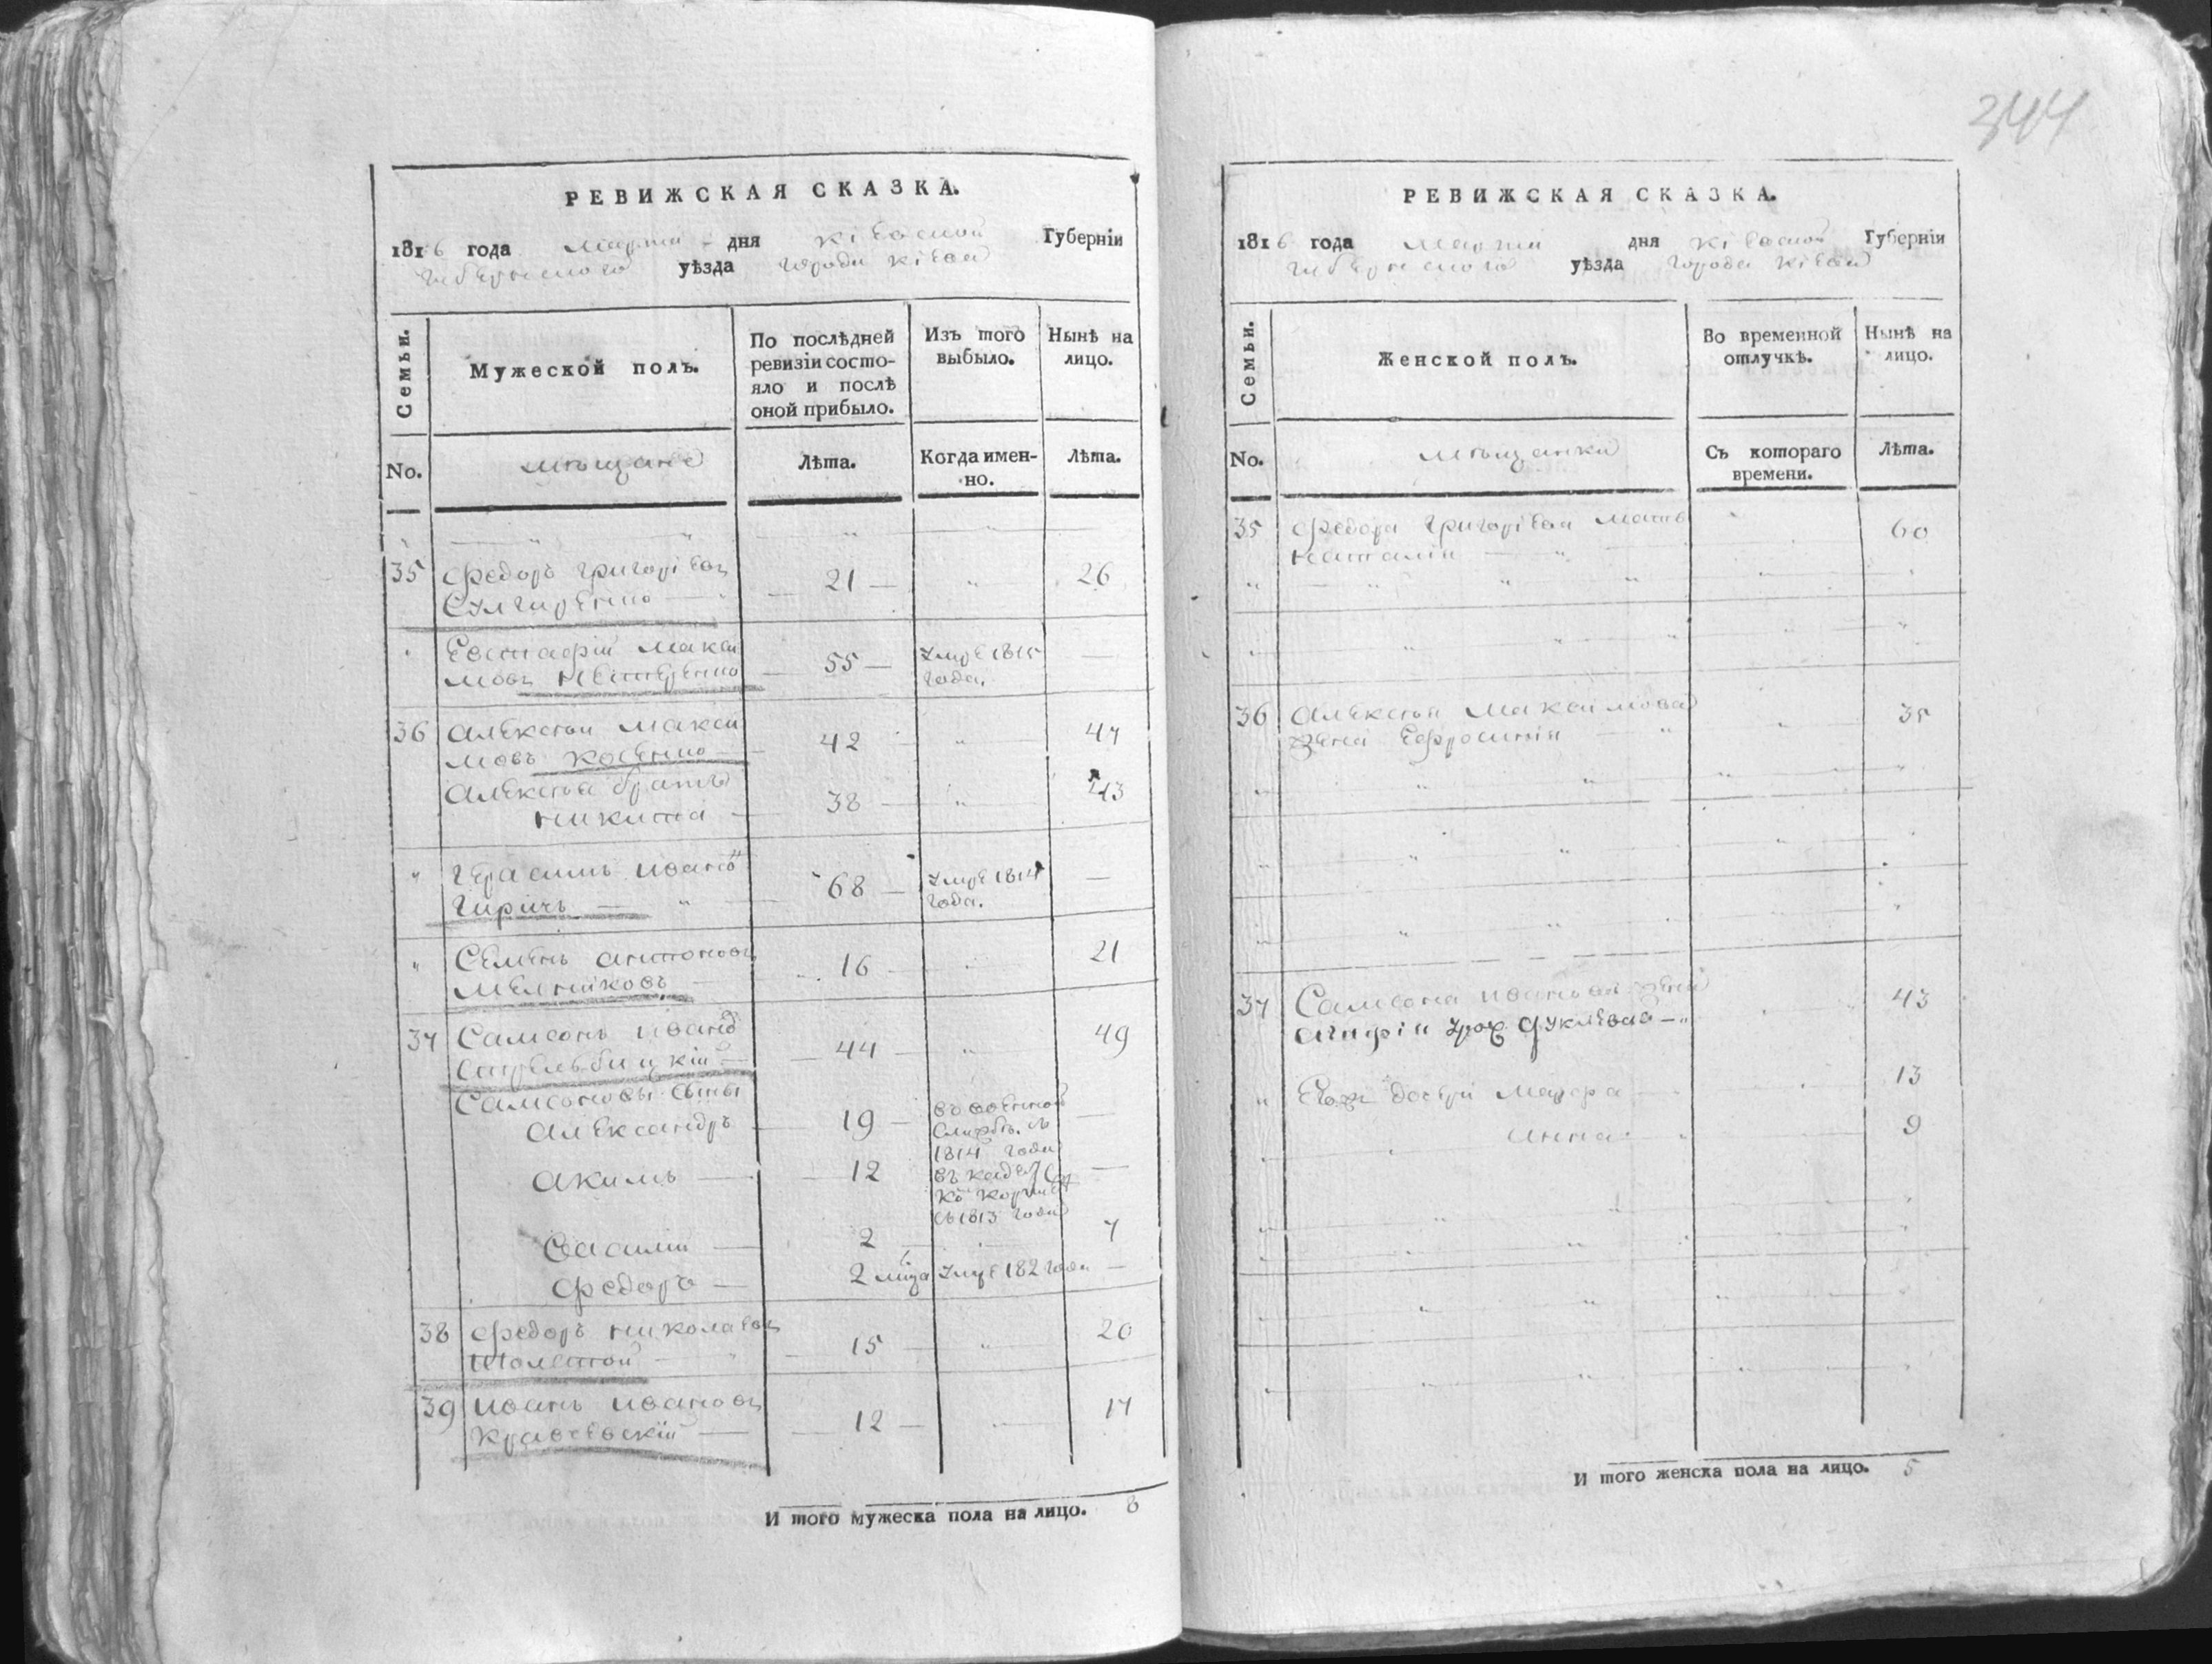 344
РЕВИЖСКАЯ СКАЗКА.
1816 года Марта дня Кіевской Губерніи
Губернского уѣзда города Кіева
Семьи.
Мужеской полъ.
По послѣдней ревизіи состо-
яло и послѣ
оной прибыло.
Изъ того
выбыло.
Нынѣ на
лицо.
No.
мѣщане
Лѣта.
Когда имен-
но.
Лѣта.
35 Федоръ Григоріевъ 21 26
Евстафій Макси 55 Умре 1815
мовъ Нестеренко года.
36 Алексѣй Макси 42 47
мовъ Косенко
Алексѣя братъ
Никита 38 43
Герасимъ Ивано 68 Умре 1814
Гиричъ года.
Семенъ Антоновъ 16 21
Мелниковъ
37 Самсонъ Ивано 44 49
Стрельбицкій
Самсоновы сыны
Александръ 19 въ военной
службѣ съ
1814 года
Акимъ 12 въ
съ 1813 года
Василій 2 7
Федоръ 2 Умре 182 года
38 Федоръ Николаевъ 15 20
Толстой
39 Иванъ Ивановъ 12 17
Красевскій
И того мужеска пола на лицо. 8
РЕВИЖСКАЯ СКАЗКА.
1816 года Марта дня Кіевской Губерніи
Губернского уѣзда города Кіева
Семьи.
Женской полъ.
Во временной
отлучкѣ.
Нынѣ на
лицо.
No.
мѣщанки
Съ котораго
времени.
Лѣта.
35 Федора Григоріева мать 60
Наталія
36 Алексѣя Максимова 35
жена Ефросинія
37 Самсона Иванова жена 43
Агафія
Его дочери 13
Анна 9
И того женска пола на лицо. 5